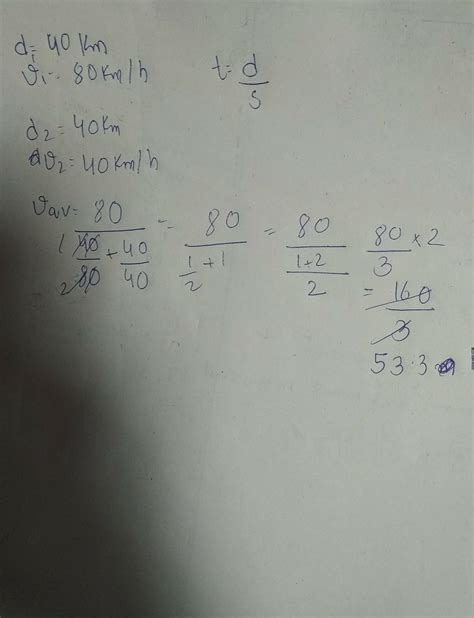 d₁= 40 Km
v₁= 80 Km/h
t= d/s
d₂ = 40Km
v₂ = 40 Km/h
Vav= 80/(40/80 + 40/40) = 80/(1/2 + 1) = 80/((1+2)/2) 80/3 × 2
= 160/3
53.3